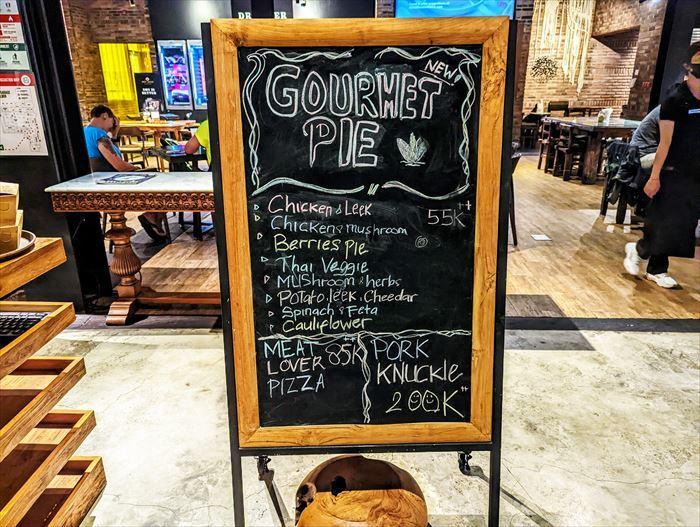 GOURMET
PIE
NEW!
Chicken & Leek
55K++
Chicken & mushroom
Berries Pie
Thai Veggie
MUShroom & herbs
Potato, leek, Cheedar
Spinach & Feta
Cauliflower
MEAT
LOVER
PIZZA
85K++
PORK
KNUCKLE
200K++